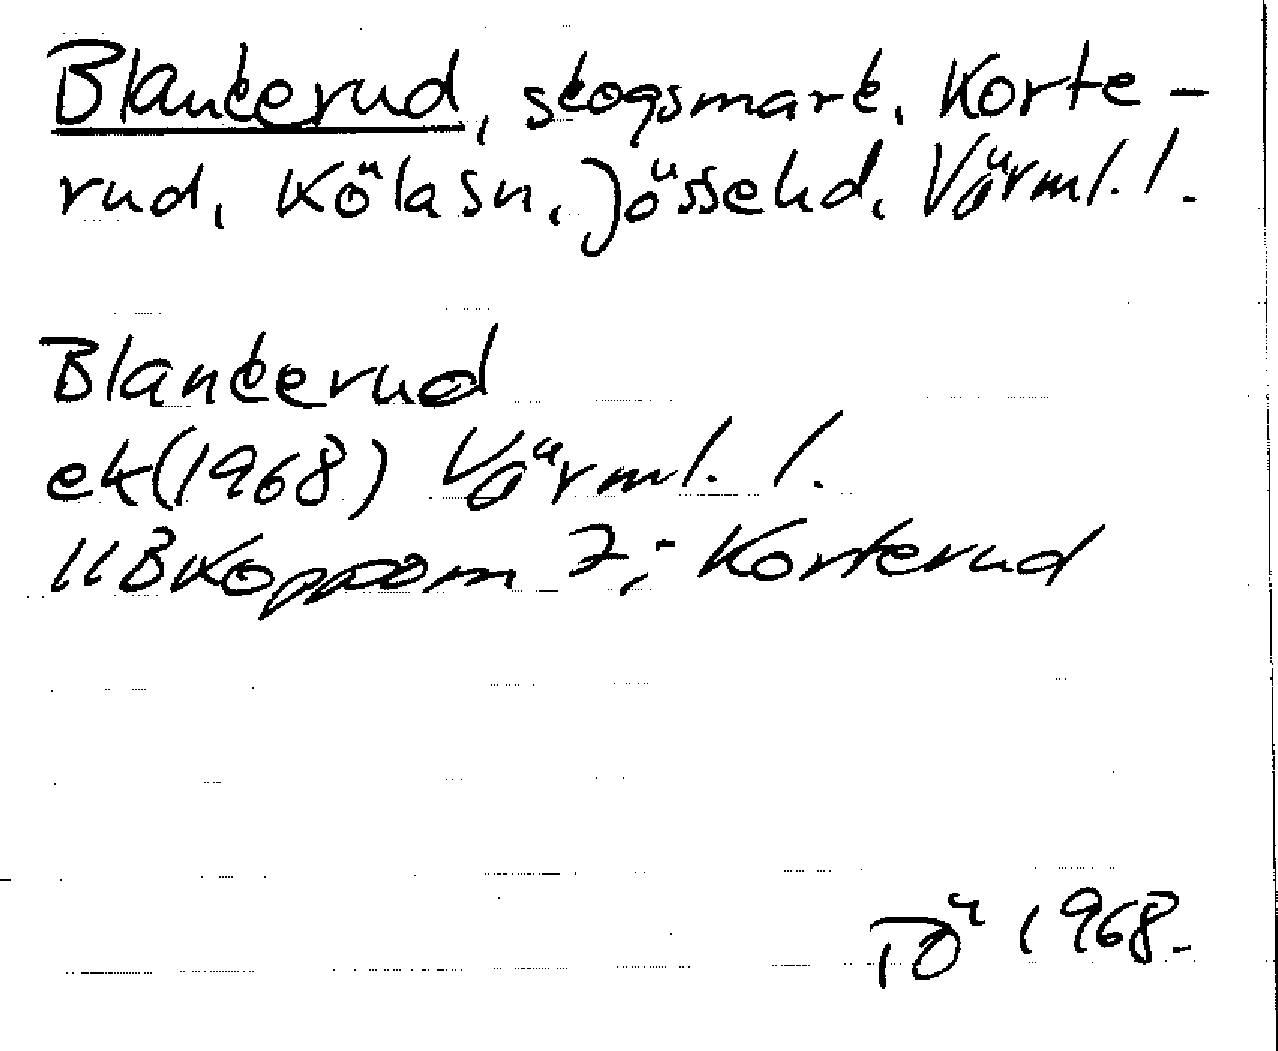 Blankerud, skogsmark, Korte-
rud, Köla sn, Jösse hd, Värml. l.
Blankerud
ek (1968) Värml. l.
11B Koppom 7; Korterud
TÖ 1968.